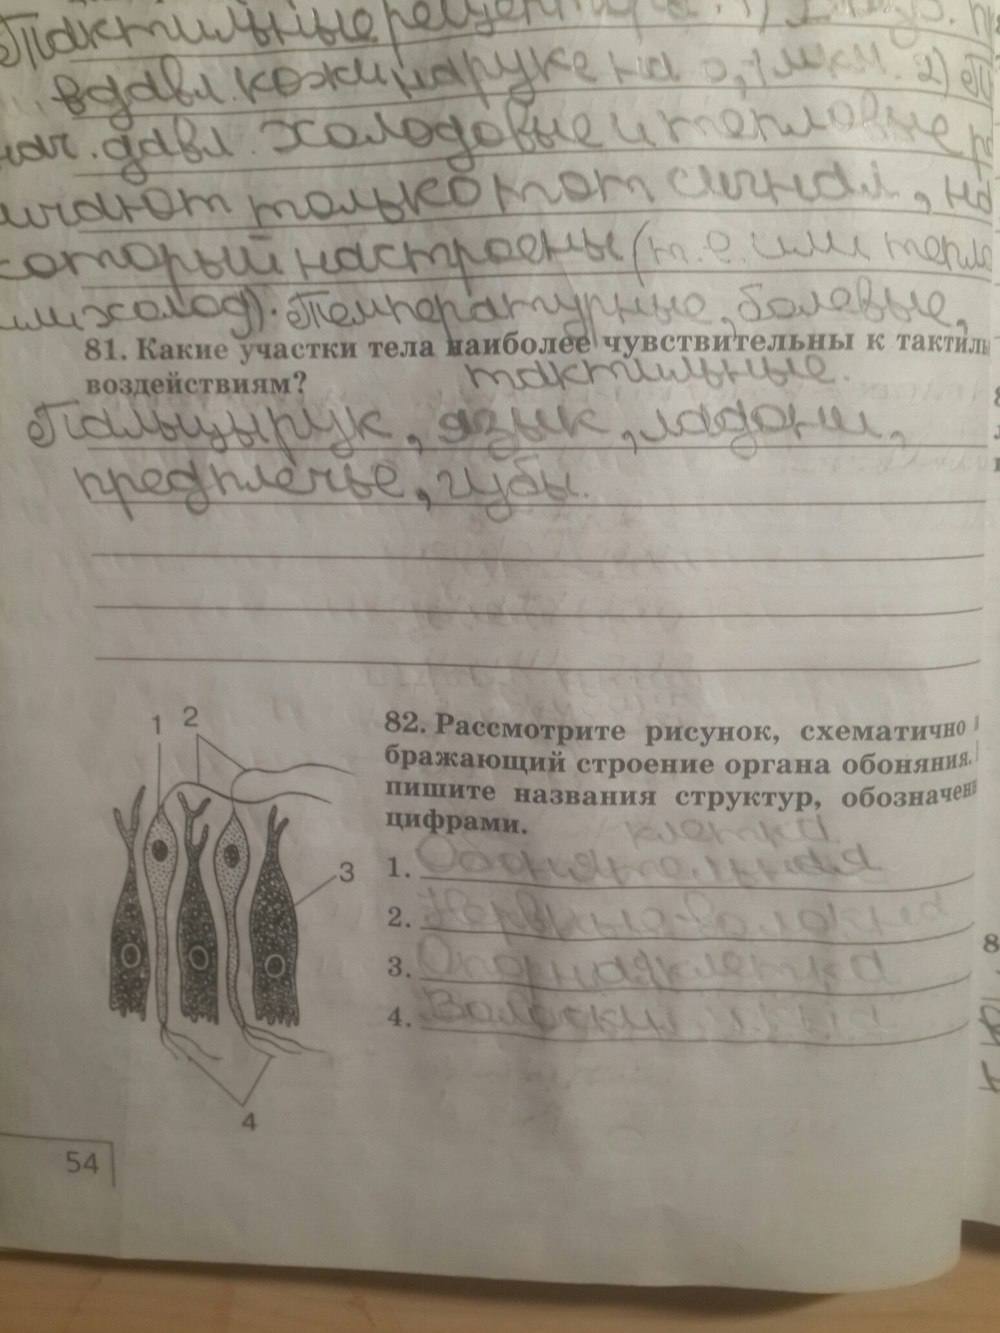 Тактильные рецепторы. 1)
вдавл. кожи на руке на 0,1 мкм. 2)
нач. давл. Холодовые и тепловые
ичают только тот сигнал, на
который настроены (т.е. или тепло
или холод). Температурные, болевые,
81. Какие участки тела наиболее чувствительны к тактиль
тактильные.
воздействиям?
Пальцы рук, язык, ладони,
предплечье, губы.
1 2
82. Рассмотрите рисунок, схематично
бражающий строение органа обоняния.
пишите названия структур, обозначен
цифрами.
клетка
3
1. Обонятельная
2. Нервные волокна
3. Опорная клетка
4. Волоски
8
4
54